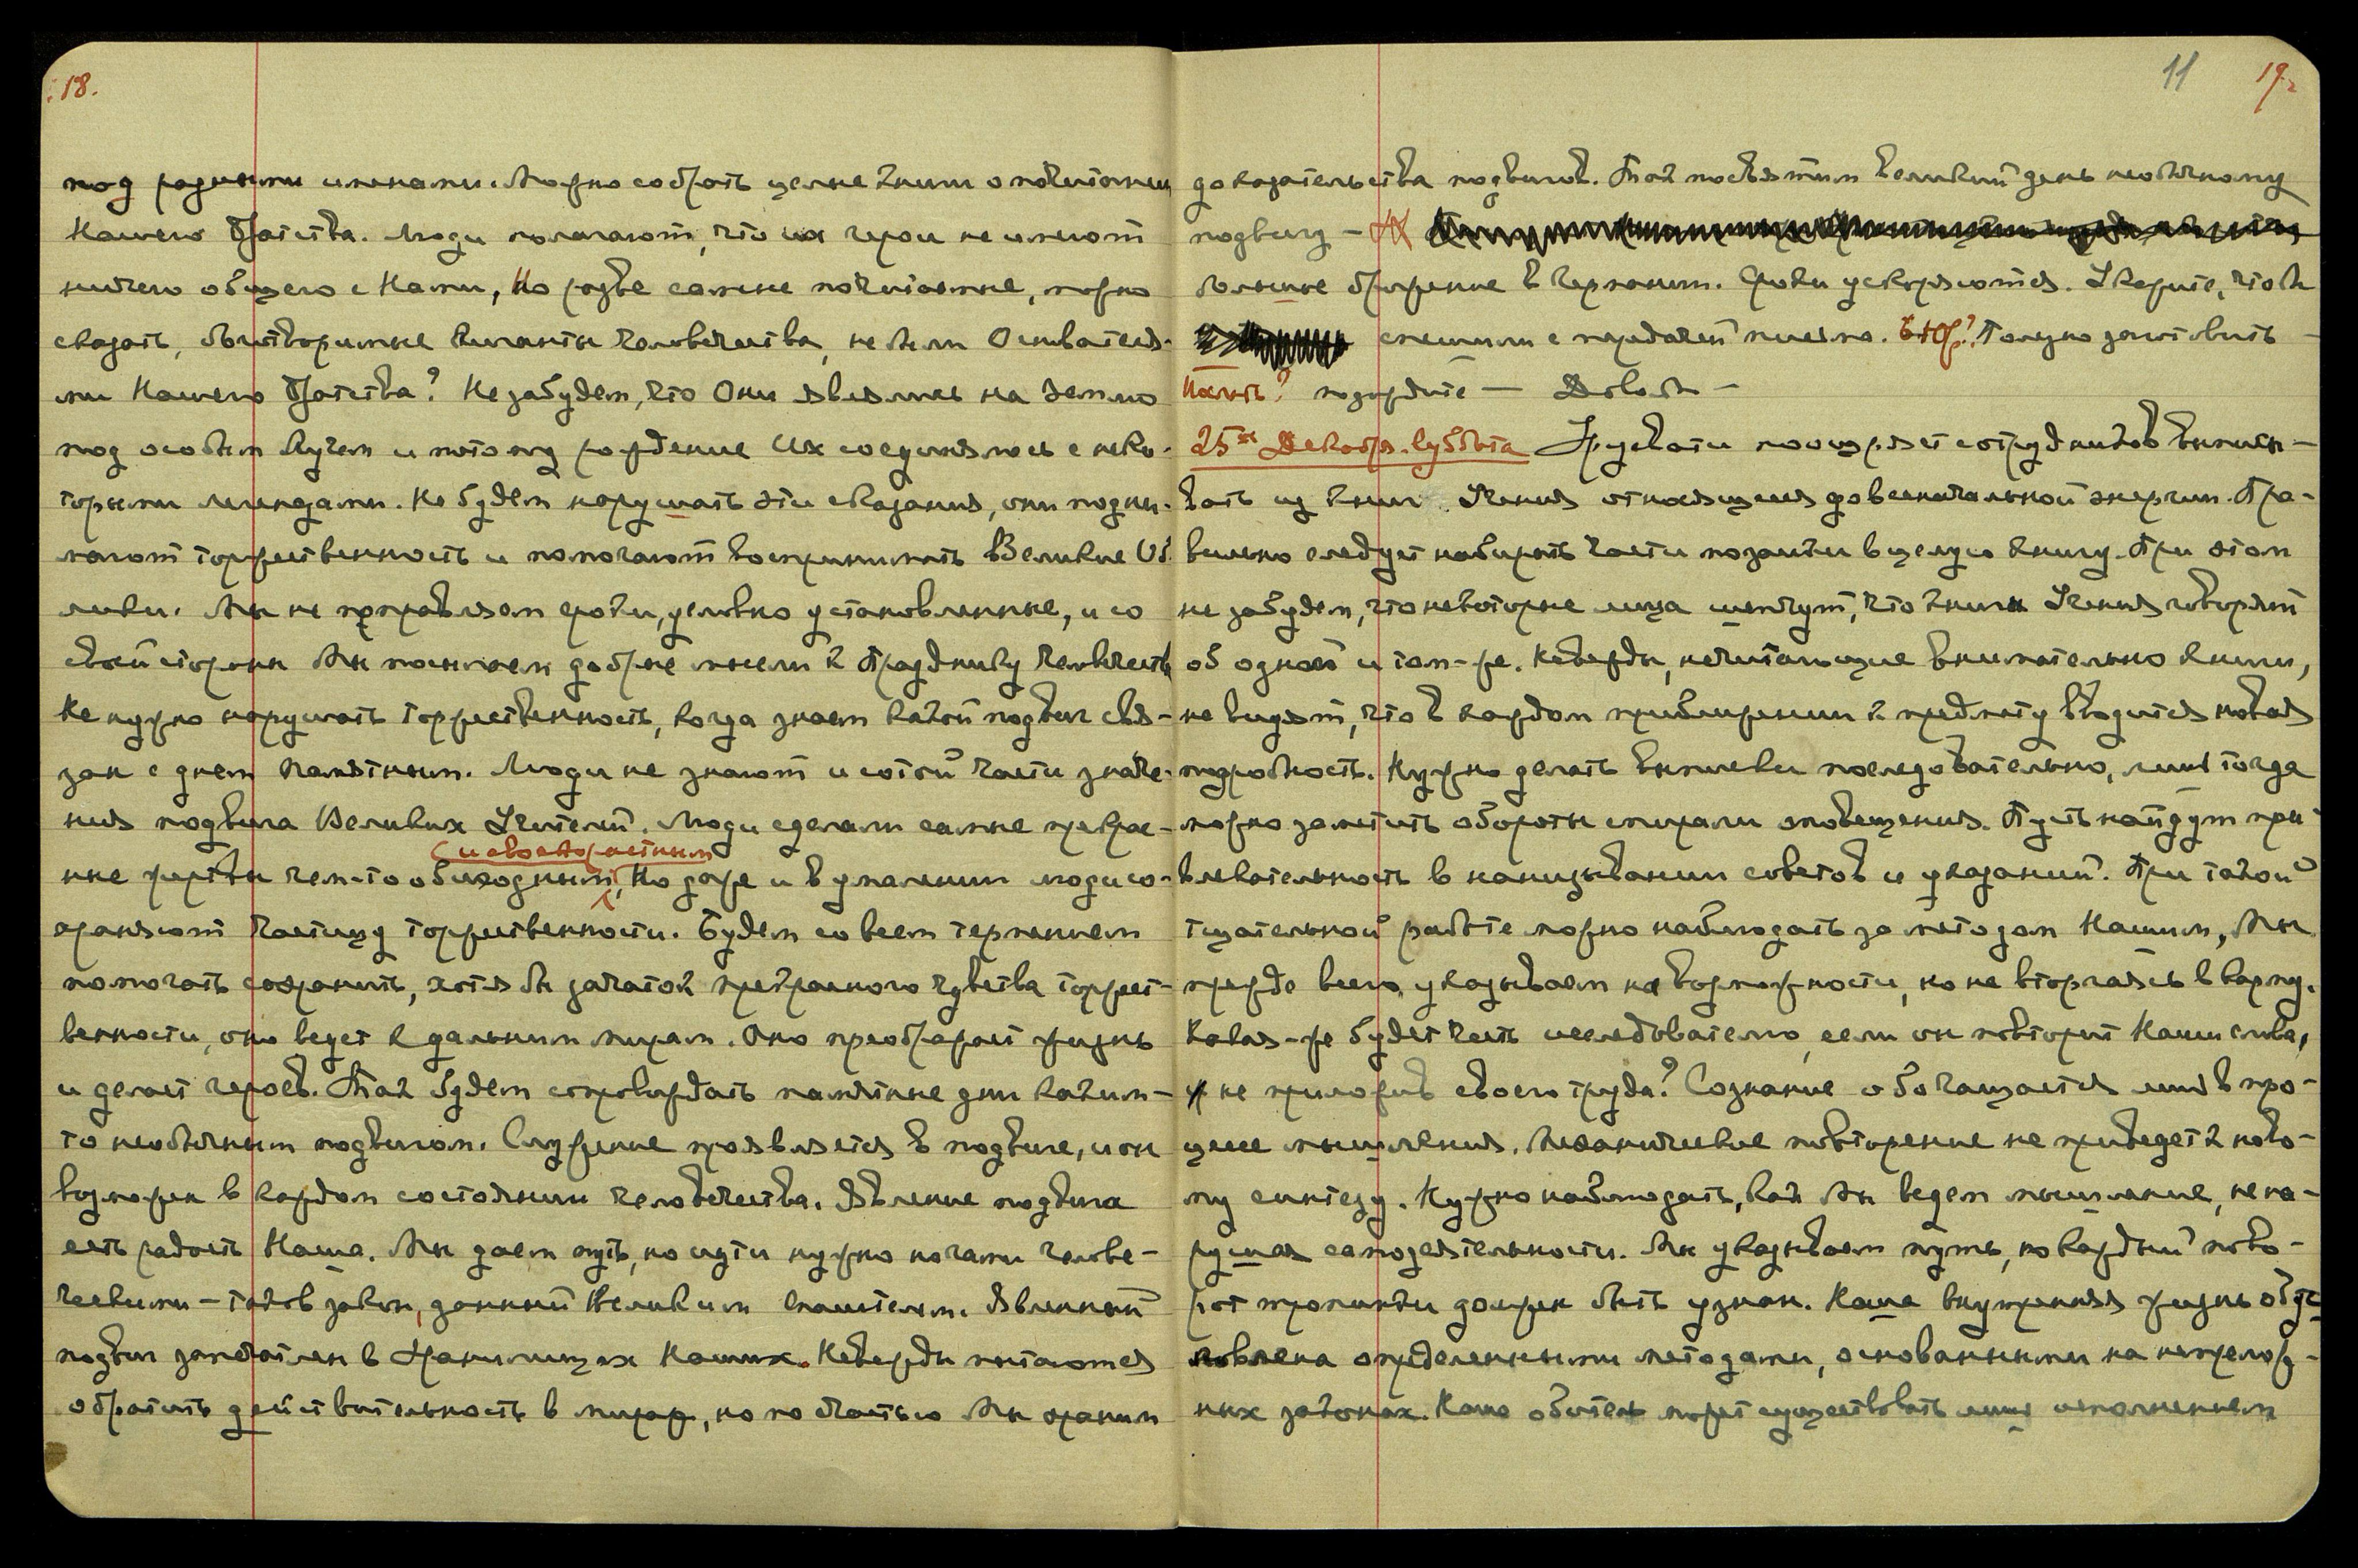 18.
под разными именами. Можно собрать целые книги о почитании
Нашего Братства. Люди полагают, что их герои не имеют
ничего общего с Нами, Но разве самые почитаемые, можно
сказать, боготворимые гиганты человечества, не были Основателя-
ми Нашего Братства? Не забудем, что Они являлись на землю
под особым Лучем и потому рождение Их соединялось с неко-
торыми легендами. Не будем нарушать эти сказания, они подни-
мают торжественность и помогают воспринимать Великие Об-
лики. Мы не поправляем сроки, условно установленные, и со
своей стороны Мы посылаем добрые мысли к Празднику человечества
Не нужно нарушать торжественность, когда знаем какой подвиг свя-
зан с днем памятным. Люди не знают и сотой части значе-
ния подвига Великих Учителей. Люди сделали самые прекрас-
(и своекорыстным
ные жертвы чем-то обиходным, Но даже и в умалении люди со-
храняют частицу торжественности. Будем со всем терпением
помогать сохранить, хотя бы зачаток прекрасного чувства торжест-
венности, оно ведет к дальним мирам. Оно преображает жизнь
и делает героев. Так будем сопровождать памятные дни каким-
то необычным подвигом. Служение проявляется в подвиге, и он
возможен в каждом состоянии человечества. Явление подвига
есть радость Наша. Мы даем путь, но идти нужно ногами челове-
ческими – таков закон, данный Великим Спасителем. Явленный
подвиг запечатлен в Хранилищах Наших. Невежды пытаются
обратить действительность в мираж, но по счастью Мы храним
11 19.
доказательства подвигов. Так посвятим великий день необычному
подвигу –
большое брожение в Германии. Сроки ускоряются. Уверьте, чтобы
спешили с передачей письма. Полезно заготовить
подождите –
25ое Декабря. Суббота Урусвати поощряет сотрудников выписы-
вать из книг Учения относящееся до всеначальной энергии. Пра-
вильно следует набирать части мозаики в целую книгу. При этом
не забудем, что некоторые лица шепчут, что книги Учения говорят
об одном и том-же. Невежды, нечитающие внимательно книги,
не видят, что в каждом приближении к предмету вводится новая
подробность. Нужно делать выписки последовательно, лишь тогда
можно заметить обороты спирали оповещения. Пусть найдут при-
влекательность в нанизывании советов и указаний. При такой
тщательной работе можно наблюдать за методом Нашим, Мы
прежде всего, указываем на возможности, но не вторгаясь в карму.
Какая-же будет честь исследователю, если он повторит Наши слова,
не приложив своего труда? Сознание обогащается лишь в про-
цессе мышления. Механическое повторение не приведет к ново-
му синтезу. Нужно наблюдать, как Мы ведем мышление, не на-
рушая самодеятельности. Мы указываем путь, но каждый пово-
рот тропинки должен быть узнан. Наша внутренняя жизнь обус-
ловлена определенными методами, основанными на непрелож-
ных законах. Наша обитель может существовать лишь исполнением